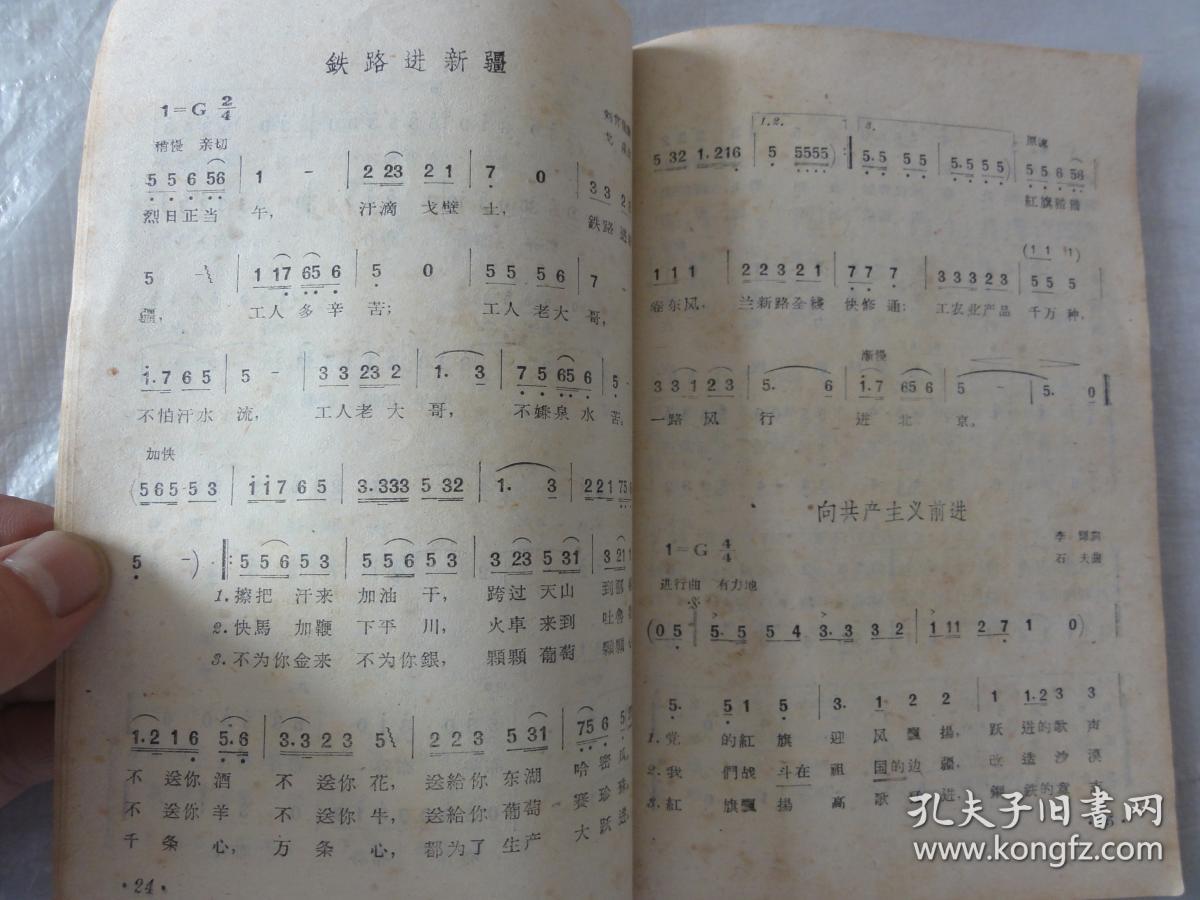 鉄路进新疆
1=G 2/4
稍慢 亲切
5 5 6 56 | 1 - | 2 23 2 1 | 7 0 | 3 3 2
烈日正当 午, 汗滴戈壁土, 鉄路
5 - | 1 17 65 6 | 5 0 | 5 5 5 6 | 7
疆, 工人多辛苦; 工人老大哥,
1.7 6 5 | 5 - | 3 3 23 2 | 1. 3 | 7 5 65 6 | 5 -
不怕汗水 流, 工人老大哥, 不嫌泉水 苦。
加快
(565 53 | 117 65 | 3.333 532 | 1. 3 | 221 75
5 -) |: 556 53 | 556 53 | 323 531 | 321
1.擦把 汗来 加油 干, 跨过 天山 到那
2.快馬 加鞭 下平川, 火車 来到 吐魯
3.不为你金来 不为你銀, 顆顆 葡萄 顆顆
1.216 5.6 | 3.323 5 | 223 531 | 756 5
不 送你酒 不 送你花, 送給你 东湖 哈密瓜
不 送你羊 不 送你牛, 送給你 葡萄 賽珍珠
千条心, 万条心, 都为了 生产 大跃进,
·24·
1.2. 3. 原速
532 1.216 | 5 5555) :| 5.5 55 | 5.5 55) | 5 5 6 56
紅旗
(1 1 1)
1 1 1 | 223 21 | 77 7 | 333 23 | 5 5 5
卷东风, 兰新路全綫 快修通; 工农业产品 千万种,
漸慢
331 23 | 5. 6 | 1.7 65 6 | 5 - | 5. 0
一路风 行 进北 京。
向共产主义前进
1=G 4/4
李 詞
石 夫曲
进行曲 有力地
(05 | 5. 5 54 3.3 32 | 1 11 27 1 0)
5. 51 5 | 3. 1 2 2 | 1 1.2 3 3
1.党 的紅旗 迎风飄揚, 跃进的歌声
2.我 們战斗在 祖国的边疆, 改造沙漠
3.紅 旗飄揚 高歌
孔夫子旧书网
www.kongfz.com